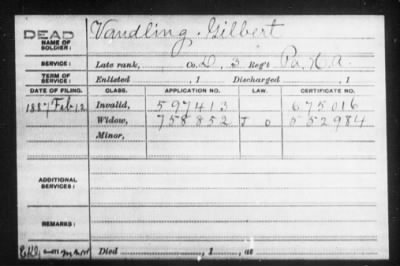 DEAD NAME OF SOLDIER: Vandling, Gilbert
SERVICE: Late rank, Co. D, 3 Reg't Pa. H. A.
TERM OF SERVICE: Enlisted , 1 Discharged , 1
DATE OF FILING. CLASS. APPLICATION NO. LAW. CERTIFICATE NO.
1887 Feb 12 Invalid, 597413 675016
Widow, 758852 J D 552984
Minor,
ADDITIONAL SERVICES:
REMARKS:
Died , 1 , at